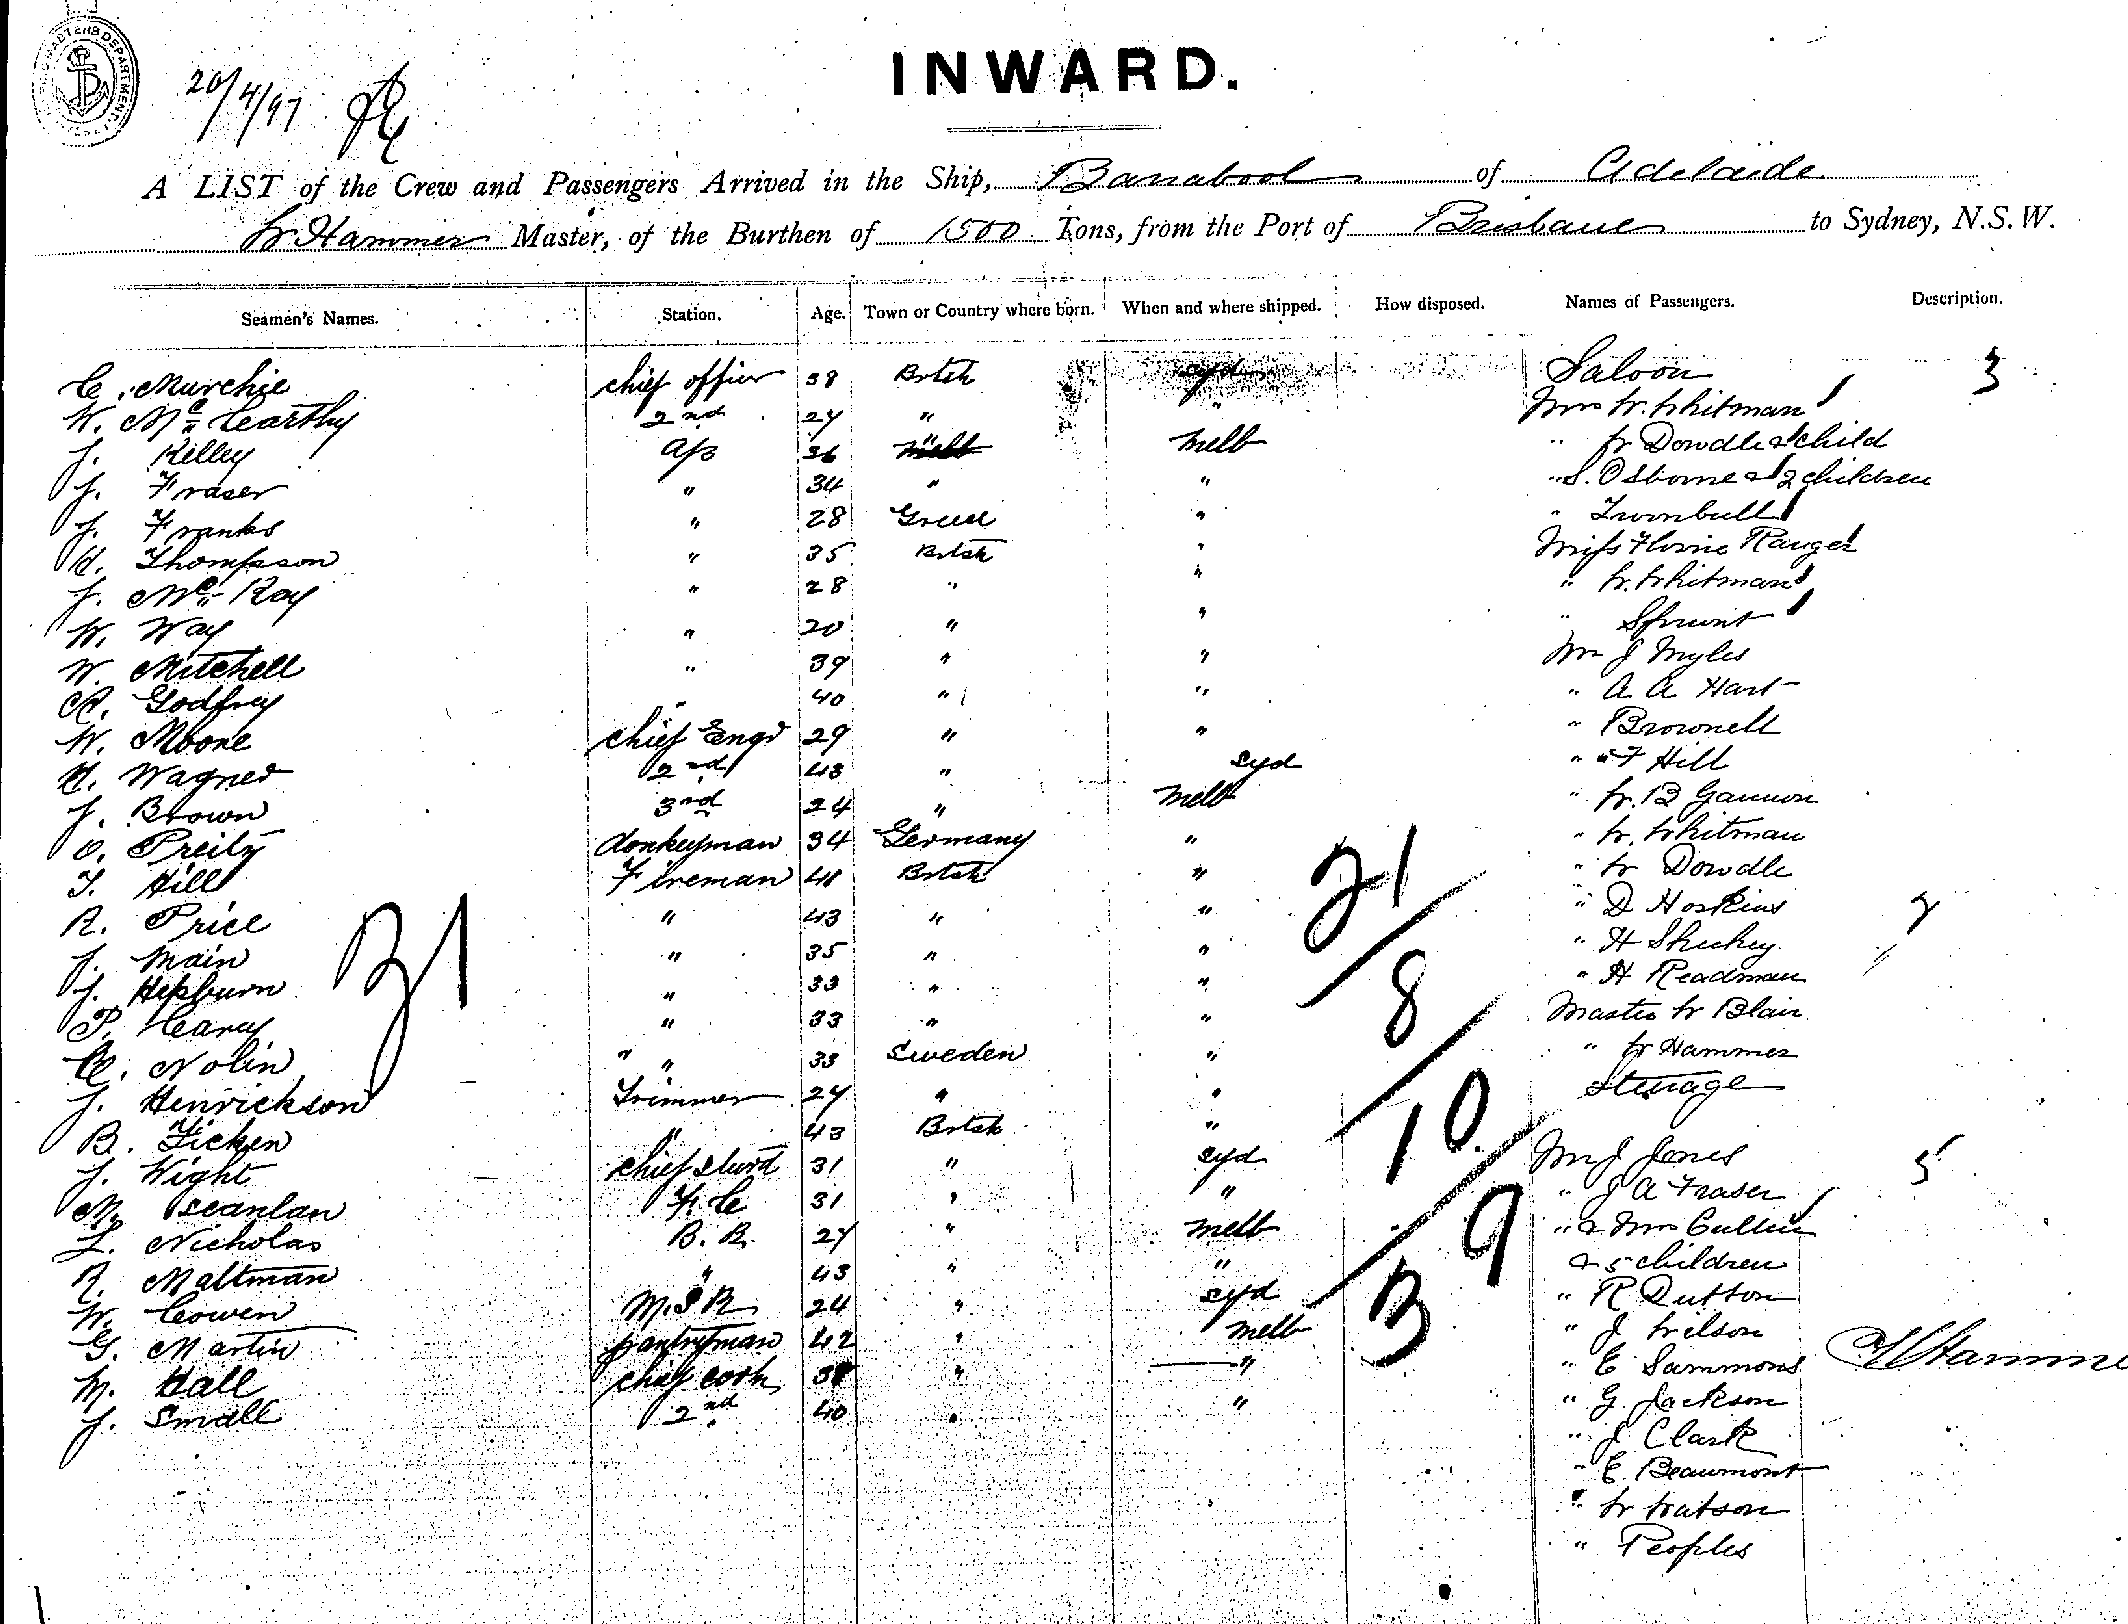 20/4/97
INWARD.
A LIST of the Crew and Passengers Arrived in the Ship, Barrabool of Adelaide
W Hammer Master, of the Burthen of 1500 Tons, from the Port of Brisbane to Sydney, N.S.W.
Seamen's Names. Station. Age. Town or Country where born. When and where shipped. How disposed. Names of Passengers. Description.
C. Murchie chief officer 38 Brtsh syd Saloon 3
W. Mc Cearthy 2nd 27 " " Mrs W. Whitman
J. Kelley A/S 36 " melb " W Dowdle & child
J. Fraser " 34 " " " S. Osborne & 2 children
J. Franks " 28 Greece " " Turnbull
H. Thompson " 35 Brtsh " Miss Florrie Ranger
J. Mc Kay " 28 " " " W. Whitman
W. Way " 20 " " " Sprunt
W. Mitchell " 39 " " Mr J Myles
R. Godfrey " 40 " " " A A Hart
W. Moore chief Engr 29 " " " Brownell
H. Wagner 2nd 43 " syd " F Hill
J. Brown 3rd 24 " melb " W. B Gannon
O. Preity donkeyman 34 Germany " " W. Whitman
T. Hill Fireman 41 Brtsh " " W Dowdle
R. Price " 43 " " " D Hoskins
J. Main " 35 " " " H Sheehey
J. Hepburn " 33 " " " H Readman
P. Heany " 33 " " Master W Blair
C. Nolin " 33 Sweden " " W Hammer
J. Henrickson Trimmer 27 " " Steerage
B. Ficken " 43 Brtsh "
J. Wight chief stwrd 31 " syd Mr J Jones 5
M. Scanlan F. C 31 " " " J A Fraser
L. Nicholas B. R. 27 " melb " & Mrs Cullen
R. Maltman " 43 " " & 5 children
W. Cowen M.S R 24 " syd " R Dutton
G. Martin pantryman 42 " melb " J Wilson
M. Hall chief cook 38 " " " E Sammons
J. Small 2nd 40 " " " G Jackson
" J Clark
" E Beaumont
" W Watson
" Peoples
31
21
8
10
9
3
W Hammer